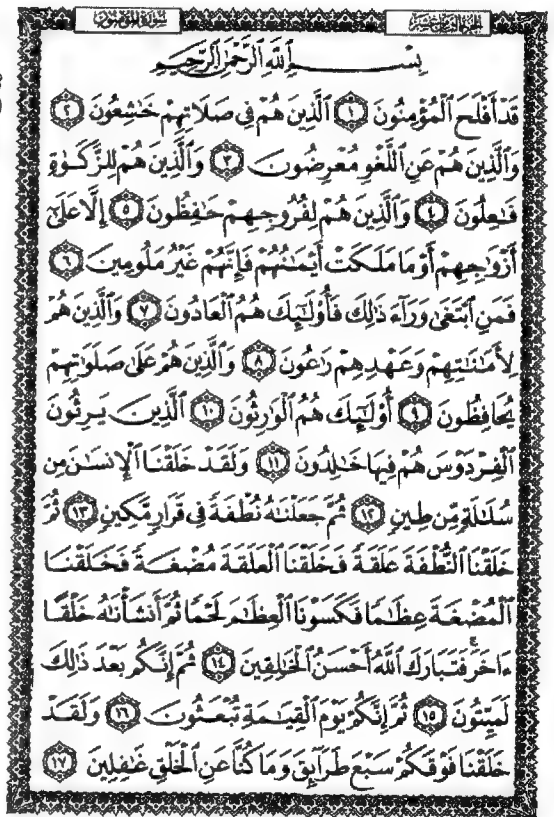 سورة المؤمنون الجزء الثامن عشر
بِسْمِ ٱللَّهِ ٱلرَّحْمَٰنِ ٱلرَّحِيمِ
قَدْ أَفْلَحَ ٱلْمُؤْمِنُونَ ۝١ ٱلَّذِينَ هُمْ فِى صَلَاتِهِمْ خَٰشِعُونَ ۝٢
وَٱلَّذِينَ هُمْ عَنِ ٱللَّغْوِ مُعْرِضُونَ ۝٣ وَٱلَّذِينَ هُمْ لِلزَّكَوٰةِ
فَٰعِلُونَ ۝٤ وَٱلَّذِينَ هُمْ لِفُرُوجِهِمْ حَٰفِظُونَ ۝٥ إِلَّا عَلَىٰٓ
أَزْوَٰجِهِمْ أَوْ مَا مَلَكَتْ أَيْمَٰنُهُمْ فَإِنَّهُمْ غَيْرُ مَلُومِينَ ۝٦
فَمَنِ ٱبْتَغَىٰ وَرَآءَ ذَٰلِكَ فَأُو۟لَٰٓئِكَ هُمُ ٱلْعَادُونَ ۝٧ وَٱلَّذِينَ هُمْ
لِأَمَٰنَٰتِهِمْ وَعَهْدِهِمْ رَٰعُونَ ۝٨ وَٱلَّذِينَ هُمْ عَلَىٰ صَلَوَٰتِهِمْ
يُحَافِظُونَ ۝٩ أُو۟لَٰٓئِكَ هُمُ ٱلْوَٰرِثُونَ ۝١٠ ٱلَّذِينَ يَرِثُونَ
ٱلْفِرْدَوْسَ هُمْ فِيهَا خَٰلِدُونَ ۝١١ وَلَقَدْ خَلَقْنَا ٱلْإِنسَٰنَ مِن
سُلَٰلَةٍ مِّن طِينٍ ۝١٢ ثُمَّ جَعَلْنَٰهُ نُطْفَةً فِى قَرَارٍ مَّكِينٍ ۝١٣ ثُمَّ
خَلَقْنَا ٱلنُّطْفَةَ عَلَقَةً فَخَلَقْنَا ٱلْعَلَقَةَ مُضْغَةً فَخَلَقْنَا
ٱلْمُضْغَةَ عِظَٰمًا فَكَسَوْنَا ٱلْعِظَٰمَ لَحْمًا ثُمَّ أَنشَأْنَٰهُ خَلْقًا
ءَاخَرَ ۚ فَتَبَارَكَ ٱللَّهُ أَحْسَنُ ٱلْخَٰلِقِينَ ۝١٤ ثُمَّ إِنَّكُم بَعْدَ ذَٰلِكَ
لَمَيِّتُونَ ۝١٥ ثُمَّ إِنَّكُمْ يَوْمَ ٱلْقِيَٰمَةِ تُبْعَثُونَ ۝١٦ وَلَقَدْ
خَلَقْنَا فَوْقَكُمْ سَبْعَ طَرَآئِقَ وَمَا كُنَّا عَنِ ٱلْخَلْقِ غَٰفِلِينَ ۝١٧